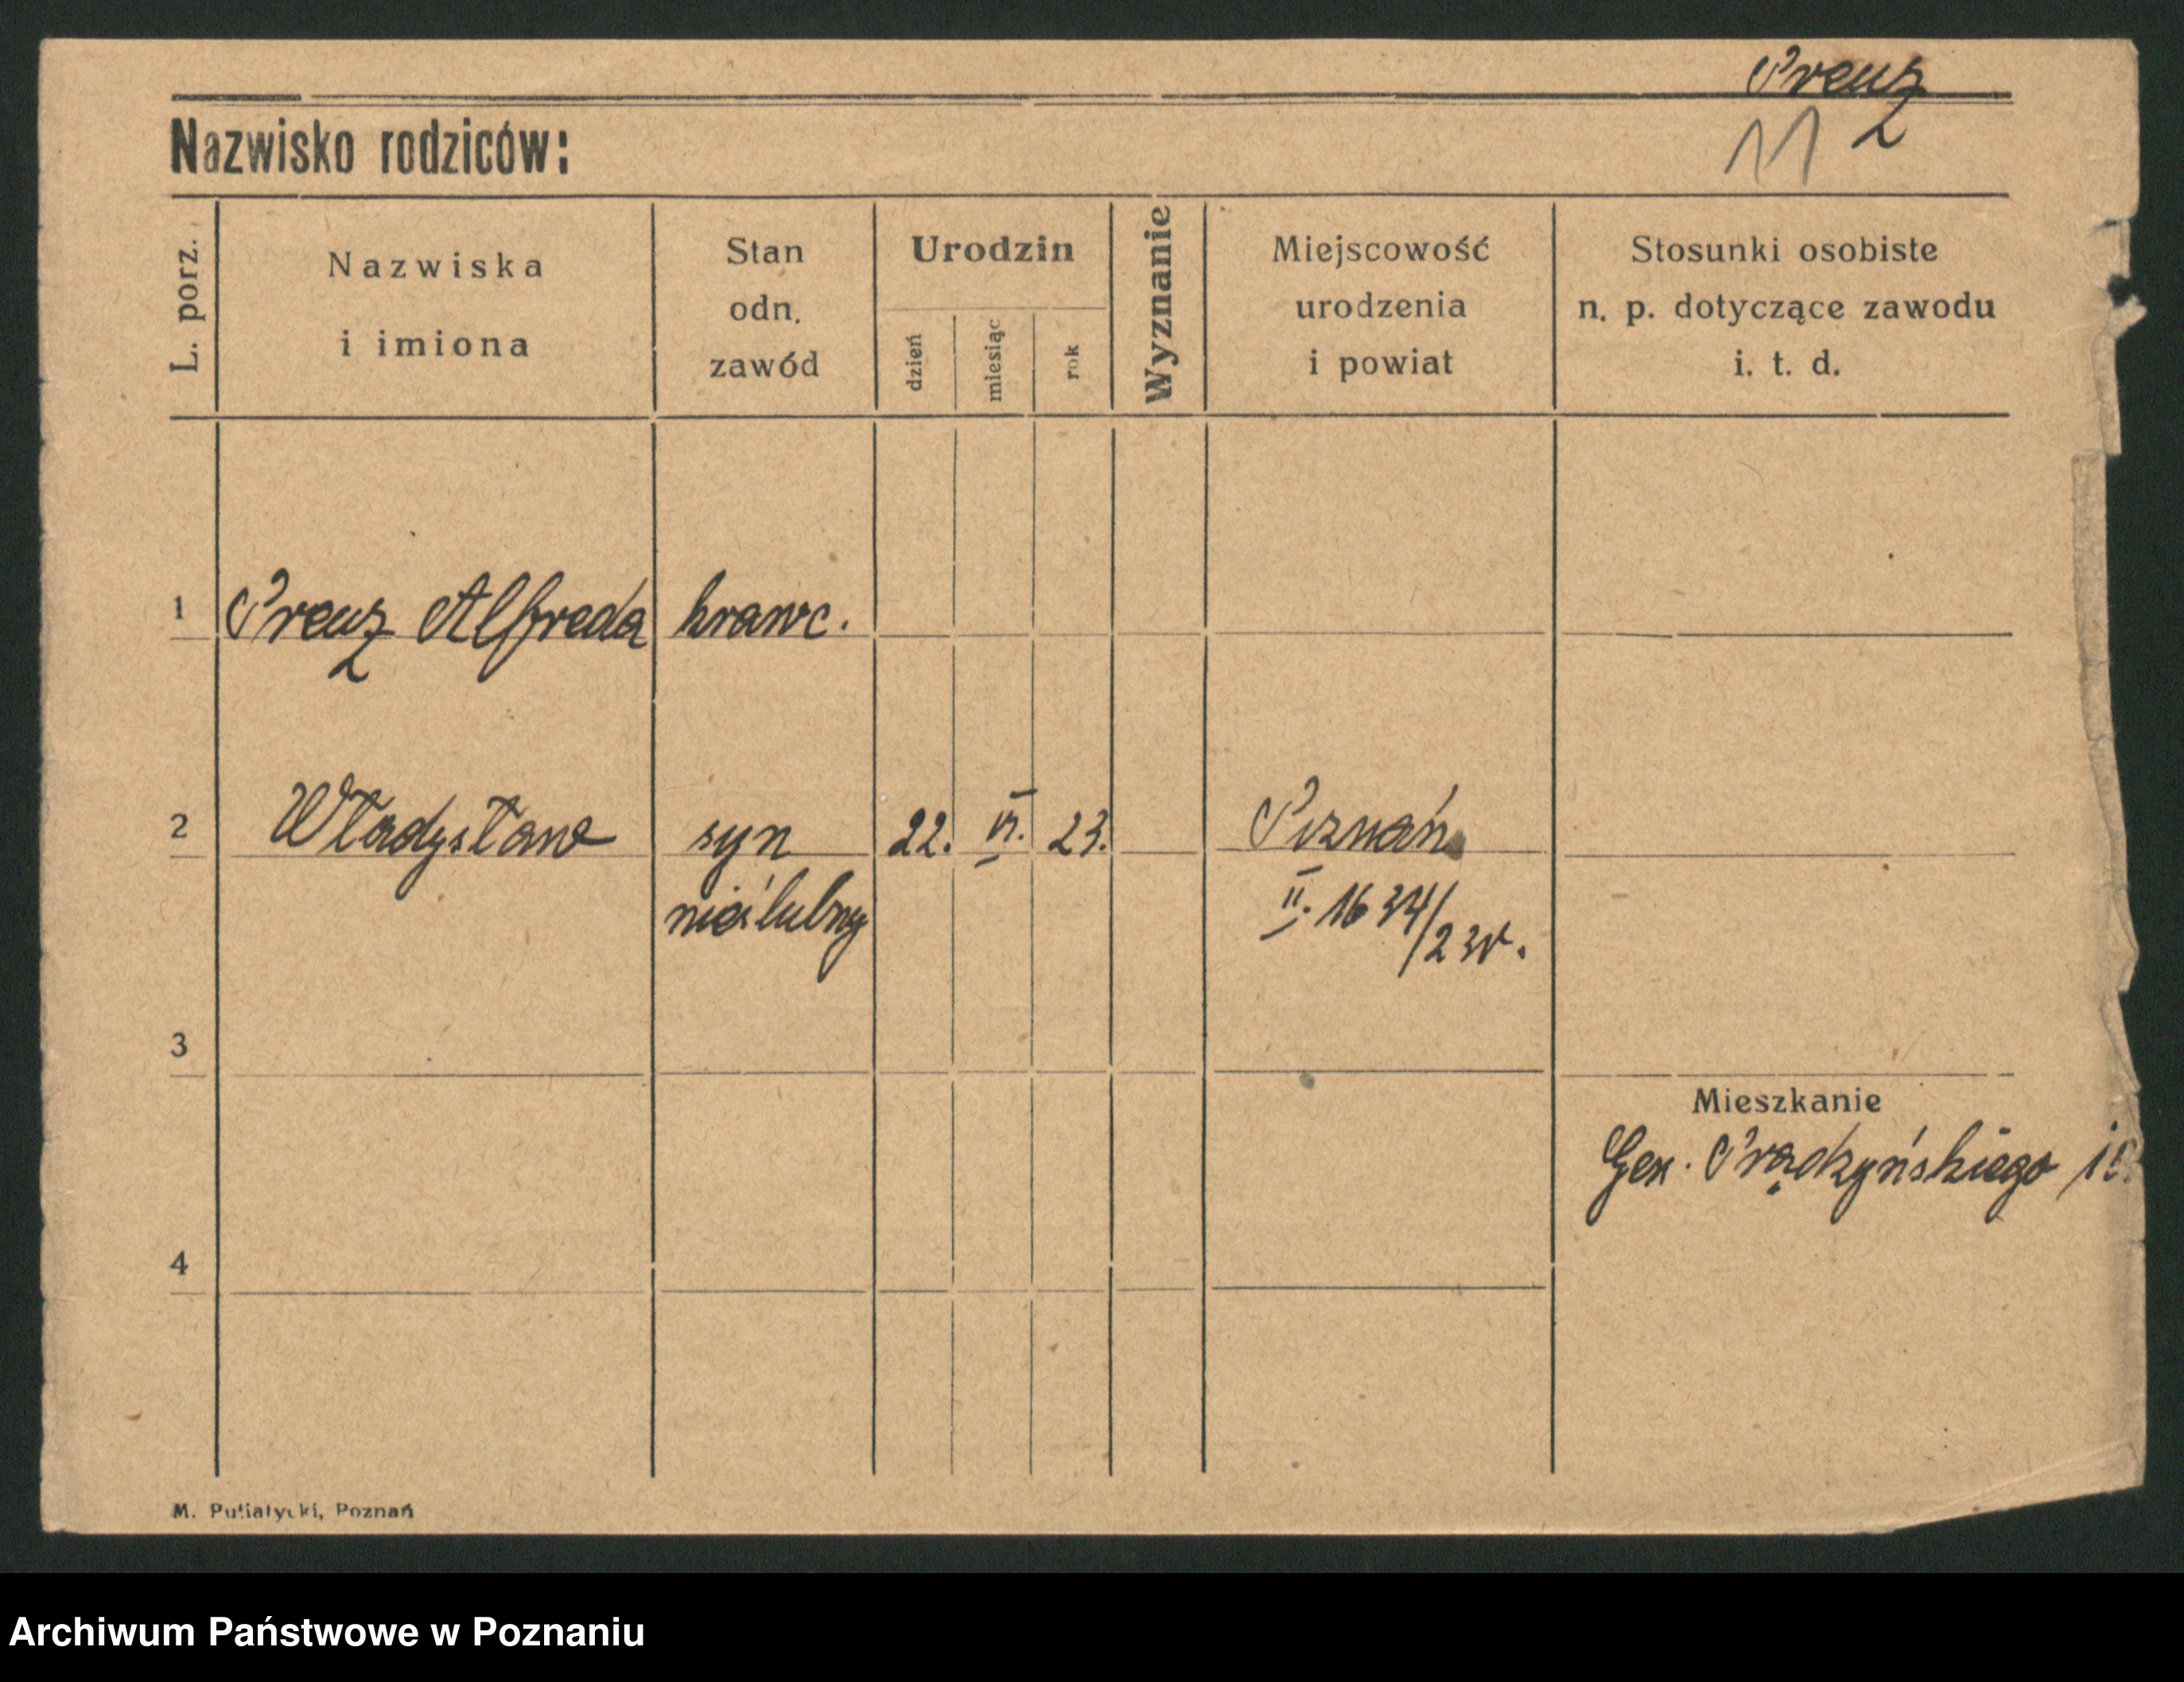 Preuz
Nazwisko rodziców:
11
L. porz.
Nazwiska
i imiona
Stan
odn.
zawód
Urodzin
dzień
miesiąc
rok
Wyznanie
Miejscowość
urodzenia
i powiat
Stosunki osobiste
n. p. dotyczące zawodu
i. t. d.
1 Preuz Alfreda krawc.
2 Władysław syn 22. VI. 23. Poznań
nieślubny II. 1634/23
3
Mieszkanie
Gen. Prądzyńskiego
4
M. Putiatycki, Poznań
Archiwum Państwowe w Poznaniu